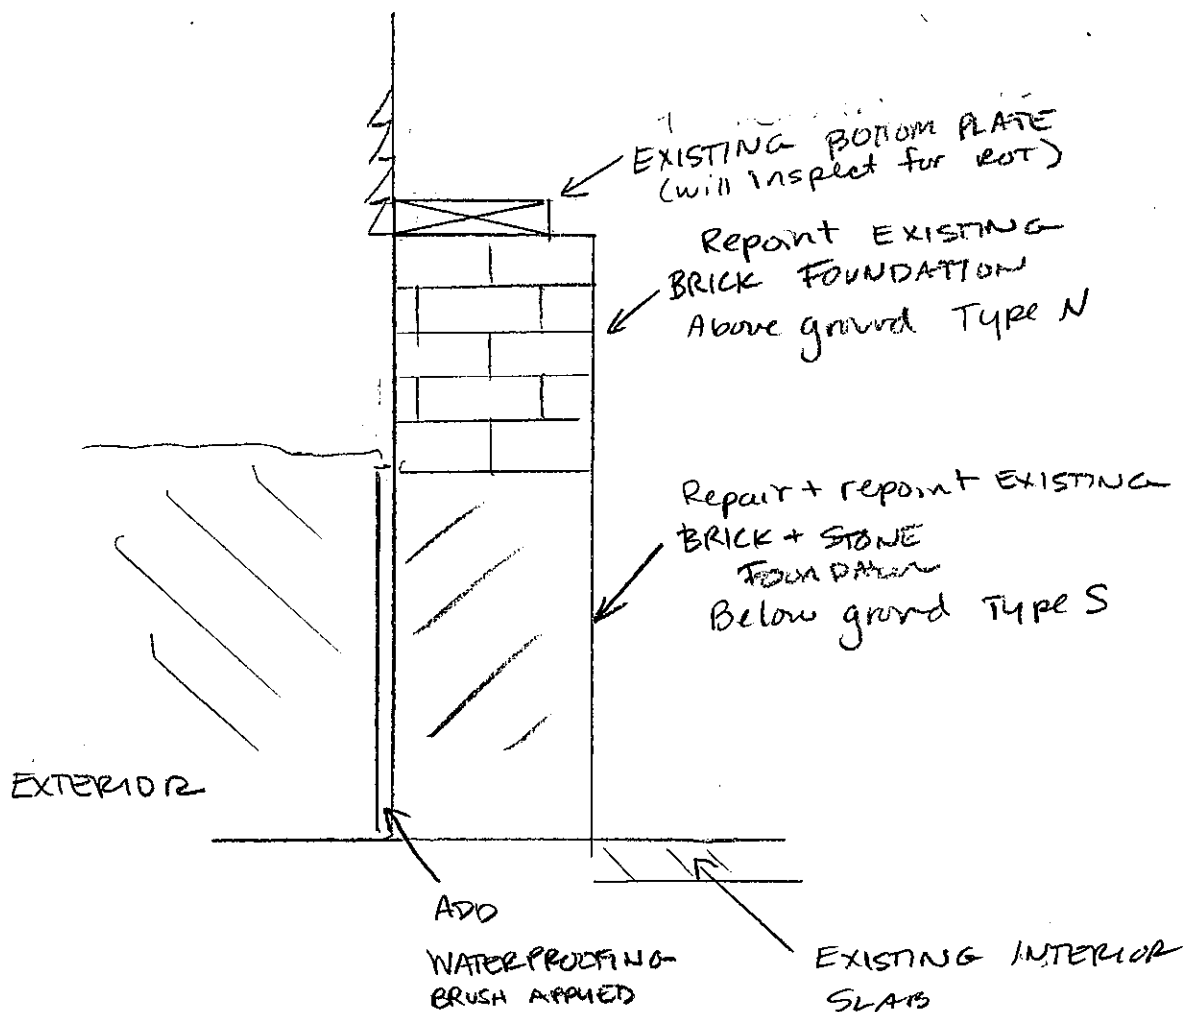 EXISTING BOTTOM PLATE
(will inspect for ROT)
Repoint EXISTING
BRICK FOUNDATION
Above ground Type N
Repair + repoint EXISTING
BRICK + STONE
FOUNDATION
Below ground Type S
EXTERIOR
ADD
WATERPROOFING
BRUSH APPLIED
EXISTING INTERIOR
SLAB